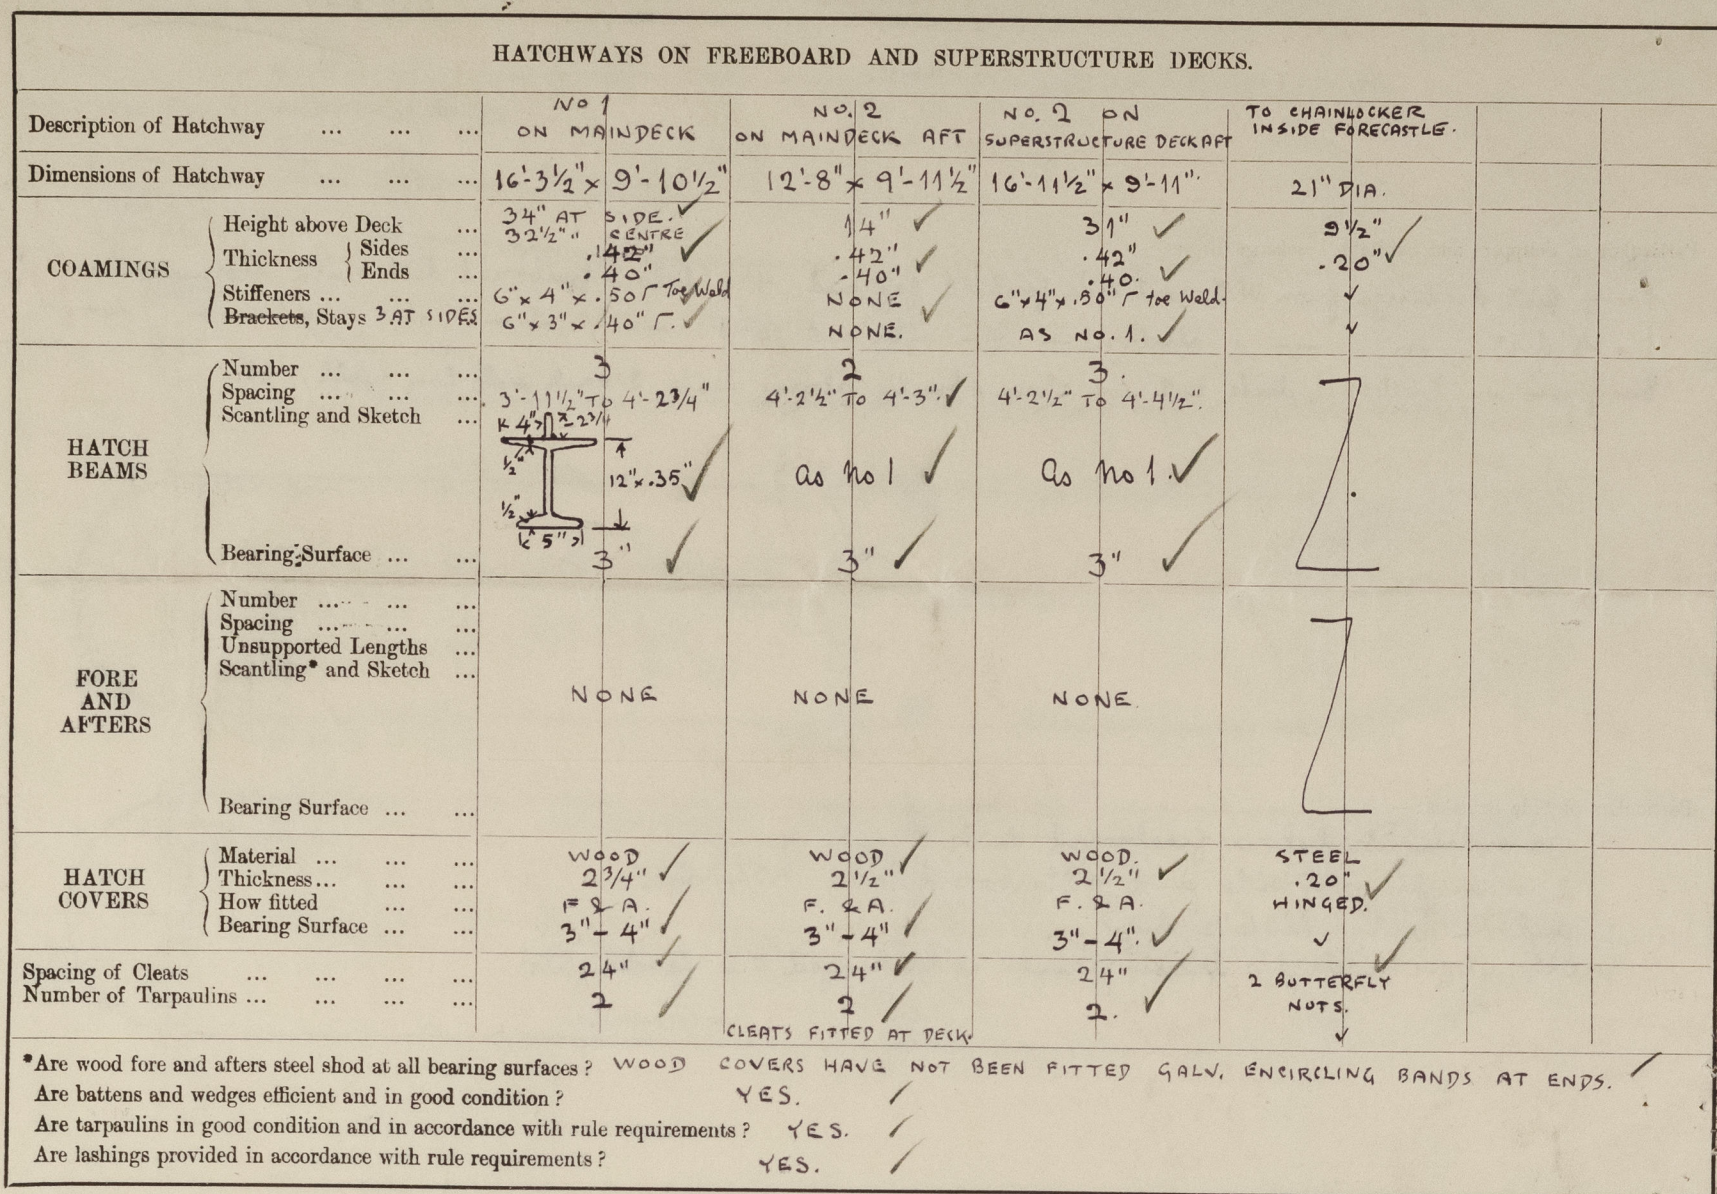 HATCHWAYS ON FREEBOARD AND SUPERSTRUCTURE DECKS.
Description of Hatchway ... ... ... No 1 ON MAINDECK NO. 2 ON MAINDECK AFT NO. 2 ON SUPERSTRUCTURE DECK AFT TO CHAINLOCKER INSIDE FORECASTLE.
Dimensions of Hatchway ... ... ... 16'-3½" x 9'-10½" 12'-8" x 9'-11½" 16'-11½" x 9'-11" 21" DIA.
COAMINGS
Height above Deck ... 34" AT SIDE. ✓ 32½" " CENTRE 14" ✓ 31" ✓ 9½"
Thickness { Sides ... .42" ✓ .42" .42" .20" ✓
Ends ... .40" .40" ✓ .40. ✓
Stiffeners ... ... ... 6" x 4" x .50 Γ Toe Weld NONE 6" x 4" x .50" Γ toe Weld. ✓
Brackets, Stays 3 AT SIDES 6" x 3" x .40" Γ. ✓ NONE. AS NO. 1. ✓ ✓
HATCH BEAMS
Number ... ... ... 3 2 3.
Spacing ... ... ... 3'-11½" TO 4'-2¾" 4'-2½" TO 4'-3" ✓ 4'-2½" TO 4'-4½".
Scantling and Sketch ... 4" 2¾ ½" 12" x .35" ✓ ½" 5" as no 1 ✓ as no 1. ✓
Bearing Surface ... ... 3" ✓ 3" ✓ 3" ✓
FORE AND AFTERS
Number ... ... ...
Spacing ... ... ...
Unsupported Lengths ...
Scantling* and Sketch ...
NONE NONE NONE
Bearing Surface ... ...
HATCH COVERS
Material ... ... ... WOOD WOOD WOOD. STEEL
Thickness ... ... ... 2¾" ✓ 2½" ✓ 2½" ✓ .20" ✓
How fitted ... ... F & A. F. & A. F. & A. HINGED.
Bearing Surface ... ... 3" - 4" ✓ 3" - 4" ✓ 3" - 4". ✓ ✓
Spacing of Cleats ... ... ... ... 24" ✓ 24" ✓ 24" 2 BUTTERFLY ✓
Number of Tarpaulins ... ... ... ... 2 ✓ 2 ✓ 2. ✓ NUTS.
CLEATS FITTED AT DECK. ✓
*Are wood fore and afters steel shod at all bearing surfaces? WOOD COVERS HAVE NOT BEEN FITTED GALV. ENCIRCLING BANDS AT ENDS. ✓
Are battens and wedges efficient and in good condition? YES. ✓
Are tarpaulins in good condition and in accordance with rule requirements? YES. ✓
Are lashings provided in accordance with rule requirements? YES. ✓